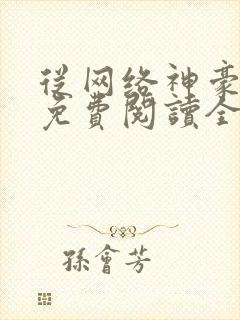 從网络神豪
免費閱讀全
孫會芳